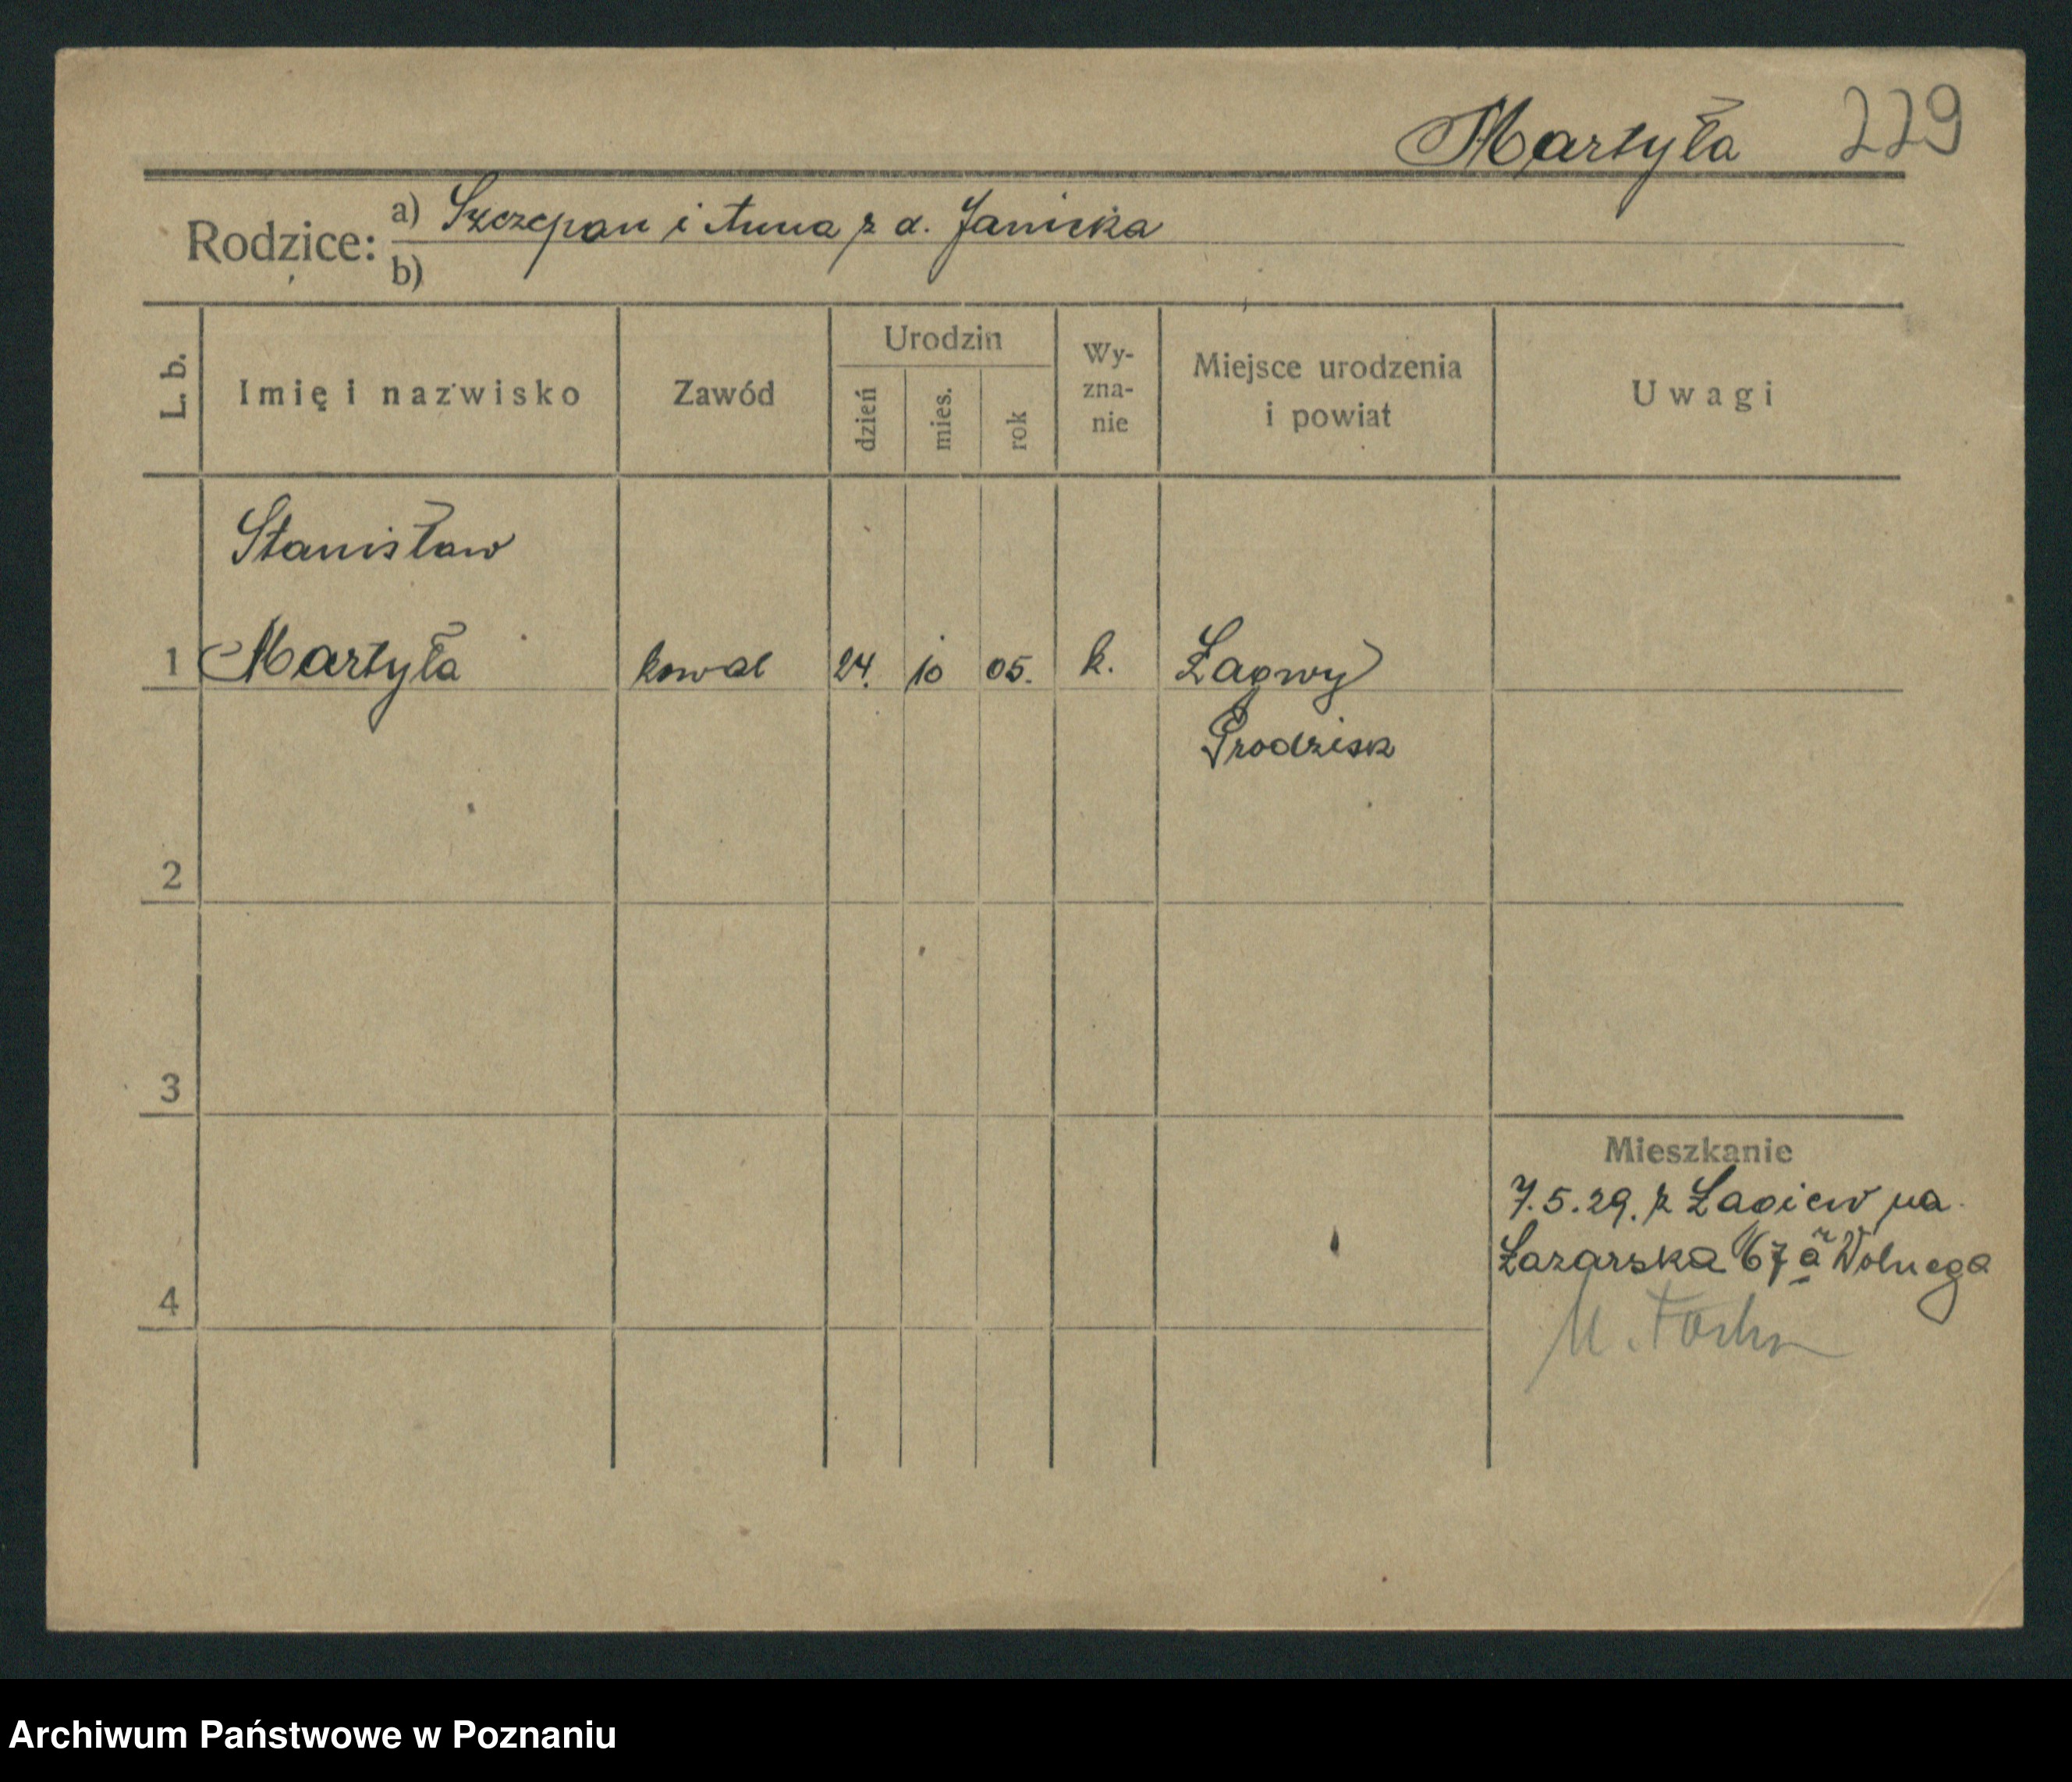 Martyła 229
Rodzice: a) Szczepan i Anna z d. Janicka
b)
L. b. Imię i nazwisko Zawód Urodzin dzień mies. rok Wy-zna-nie Miejsce urodzenia i powiat Uwagi
Stanisław
1 Martyła kowal 24. 10 05. k. Łagwy
Grodzisk
2
3
Mieszkanie
7.5.29. z Łagiew na
Łazarska 67a Wolnega
4
M. Focha
Archiwum Państwowe w Poznaniu